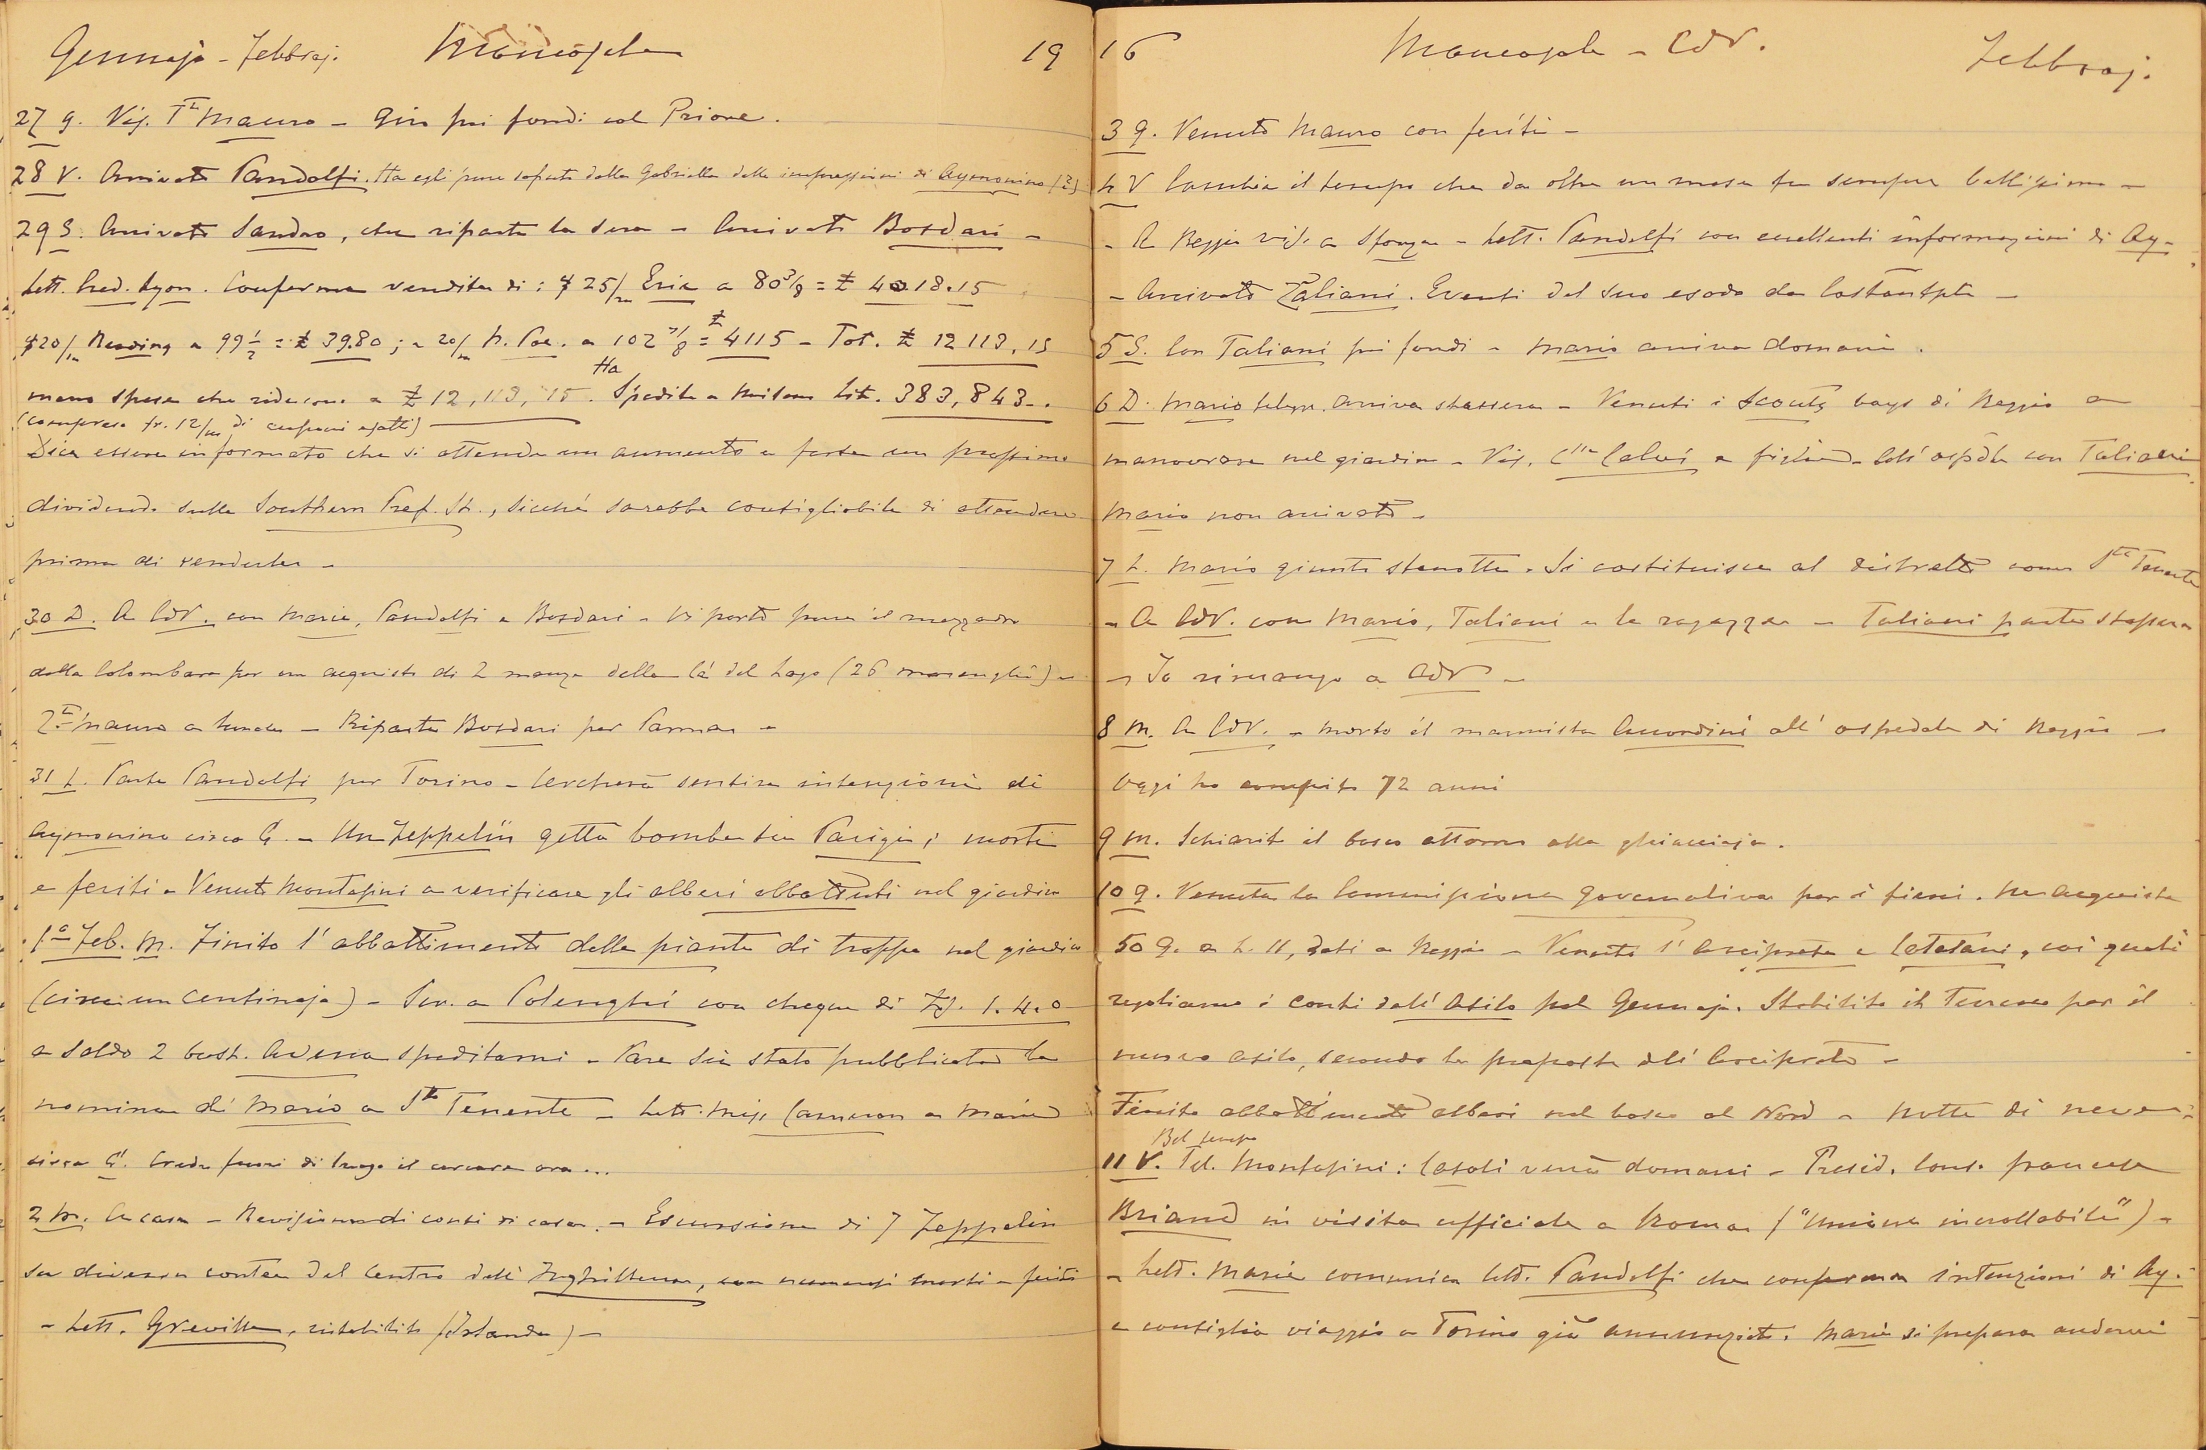 Gennajo - Febbraj. Mancasale 19
27 g. Vis. T Mauro - Giro pei fondi col Prione.
28 V. Arrivato Pandolfi. Ha egli pure saputo dalla Gabriella delle impressioni di Aymonino (?)
29 S. Arrivato Sandro, che riparte la sera - Arrivato Bosdari -
Lett. Cred. Lyon. Conferma vendita di: $ 25/m Erie a 80 3/8 = 18.15
$20/m Reading a 99 1/2 = 39.80; - 20/m N. Pac. a 102 7/8 = 4115 - Tot. 12113.15
meno spese che riducono a 12,113,15. Ha Spedito a Milano Lit. 383,843-.
(compreso fr. 12/m di cuponi esatti)
Dice essere informato che si attende un aumento e forse un prossimo
dividendo sulle Southern Pref. St., sicché sarebbe consigliabile di attendere
prima di venderle -
30 D. A CdV. con Maria, Pandolfi e Bosdari - Vi porto pure il mezzadro
della Colombara per un acquisto di 2 manze della Cà del Lago (26 marenghi) -
Mauro a - Riparte Bosdari per Parma -
31 L. Parte Pandolfi per Torino - Cercherà sentire intenzioni di
Aymonino circa G. - Un Zeppelin getta bombe su Parigi; morti
e feriti - Venuto Montasini a verificare gli alberi abbattuti nel giardino
1° Feb. M. Finito l'abbattimento delle piante di troppo nel giardino
(circa un centinajo) - Scr. a Polenghi con cheque di 1.4.0
a saldo 2 bush. Avena speditami - Pare sia stata pubblicata la
nomina di Mario a S Tenente - Lett. Miss Cameron a Maria
circa G. Crede fuori di luogo il cercare ora ...
2 M. A casa - Revisione di conti di casa. - Escursione di 7 Zeppelin
su diverse contee del centro dell'Inghilterra, con numerosi morti e feriti
- Lett. Greville, ristabilito (Irlanda) -
16 Mancasale - CdV. Febbraj.
3 G. Venuto Mauro con feriti -
4 V Cambia il tempo che da oltre un mese fu sempre bellissimo -
- A Reggio vis. a Sforza - Lett. Pandolfi con eccellenti informazioni di Ay-
- Arrivato Taliani. Eventi del suo esodo da Costantpli -
5 S. Con Taliani pei fondi - Mario arriva domani.
6 D. Mario telegr. arriva stassera - Venuti i Scouts boys di Reggio a
manovrare nel giardino - Vis. C Calvi e figlie - all'ospdle con Taliani
Mario non arrivato -
7 L. Mario giunto stanotte. Si costituisce al distretto come S Tenente
- A CdV. con Mario, Taliani e le ragazze - Taliani parte stassera
- Io rimango a CdV -
8 M. A CdV. - Morto il Accordini all'ospedale di Reggio -
Oggi ho compito 72 anni
9 M. Schiarito il bosco attorno alla ghiacciaja.
10 G. Venuta la Commissione governativa per i fieni. Ne acquista
50 q. a L. 11, dati a Reggio - Venuto l'Arciprete e Catelani, coi quali
regoliamo i conti dell'Asilo pel Gennajo. Stabilito il Terreno per il
nuovo asilo, secondo la proposta dell'Arciprete -
Finito abbattimento alberi nel bosco al Nord - Notte di neve -
Bel tempo
11 V. Tel. Montasini: Casoli verrà domani - Presid. Cons. francese
Briand in visita ufficiale a Roma ("Unione incrollabile") -
- Lett. Maria comunica lett. Pandolfi che conferma intenzioni di Ay.
e consiglia viaggio a Torino già annunziato. Maria si prepara andarvi